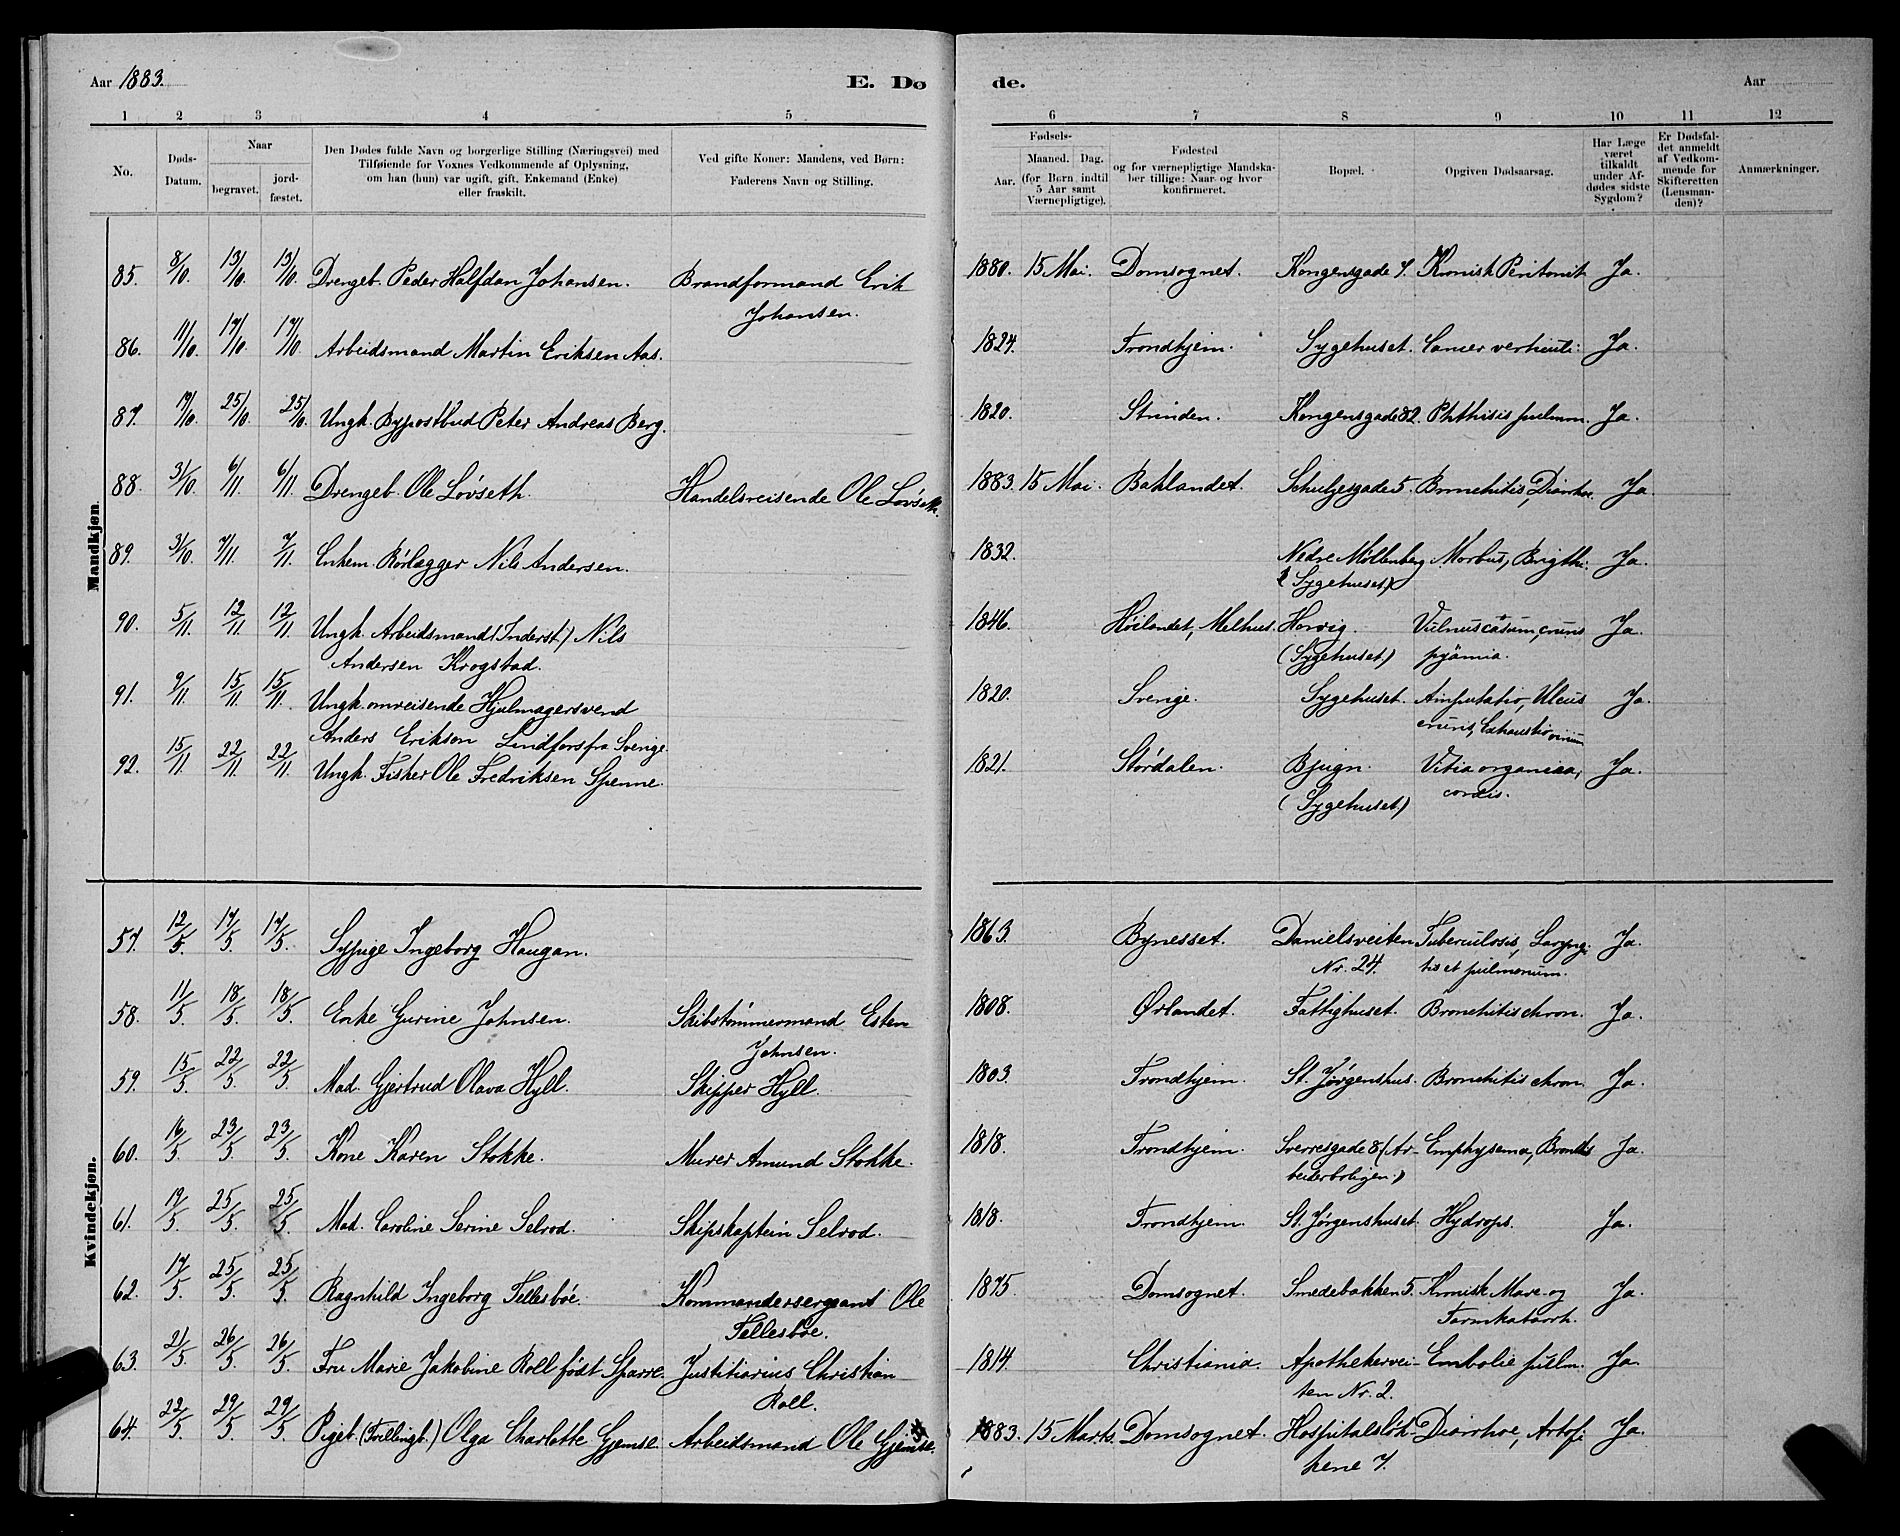 Aar 1883. E. Dø de. Aar
1 2 3 4 5 6 7 8 9 10 11 12
No.
Døds-
Datum.
Naar
begravet.
jord-
fæstet.
Den Dødes fulde Navn og borgerlige Stilling (Næringsvei) med
Tilføiende for Voxnes Vedkommende af Oplysning,
om han (hun) var ugift, gift, Enkemand (Enke)
eller fraskilt.
Ved gifte Koner: Mandens, ved Børn:
Faderens Navn og Stilling.
Fødsels-
Aar.
Maaned. Dag.
(for Børn indtil
5 Aar samt
Værnepligtige).
Fødested
og for værnepligtige Mandska-
ber tillige: Naar og hvor
konfirmeret.
Bopæl.
Opgiven Dødsaarsag.
Har Læge
været
tilkaldt
under Af-
dødes sidste
Sygdom?
Er Dødsfal-
det anmeldt
af Vedkom-
mende for
Skifteretten
(Lensman-
den)?
Anmærkninger.
Mandkjøn.
85. 8/10. 13/10. 13/10. Drengeb. Peder Halfdan Johansen. Brandformand Erik 1880. 15 Mai. Domsognet. Kongensgade 7. Kronisk Peritonit Ja.
Johansen.
86. 11/10. 17/10. 17/10. Arbeidsmand Martin Eriksen Aas. 1824. Trondhjem. Sygehuset. Cancer Ja.
87. 17/10. 25/10. 25/10. Ungk. Bypostbud Peter Andreas Berg. 1820. Strinden. Kongensgade 82. Phthisis pulmon. Ja.
88. 31/10. 6/11. 6/11. Drengeb. Ole Løvseth. Handelsreisende Ole Løvseth. 1883. 15 Mai. Baklandet. Schultzesgade 5. Bronchitis, Diarrhoe. Ja.
89. 31/10. 7/11. 7/11. Enkem. Rørlægger Nils Andersen. 1832. Nedre Møllenberg Morbus, Brigthi. Ja.
2 Sygehuset)
90. 5/11. 12/11. 12/11. Ungk. Arbeidsmand (Inderst.) Nils 1846. Høilandet, Melhus. Horvig. Vulnus cæsum, cruris Ja.
Andersen Krogstad. (Sygehuset.) pyämia.
91. 9/11. 15/11. 15/11. Ungk. omreisende Hjulmagersvend 1820. Sverige. Sygehuset. Amputatio, Ulcus Ja.
Anders Erikson Lindfors fra Sverige. cruris, Exhaustio virium
92. 15/11. 22/11. 22/11. Ungk. Fisker Ole Fredriksen Spenne. 1821. Størdalen. Bjugn. Vitia organica, Ja.
(Sygehuset.) cordis.
Kvindekjøn.
57. 12/5. 17/5. 17/5. Sypige Ingeborg Haugan. 1863. Bynesset. Danielsveiten Tuberculosis, Laryng. Ja.
Nr. 24. tis et pulmonum.
58. 11/5. 18/5. 18/5. Enke Gurine Johnsen. Skibstømmermand Esten 1808. Ørlandet. Fattighuset. Bronchitis chron. Ja.
Johnsen.
59. 15/5. 22/5. 22/5. Mad. Gjertrud Olava Hyll. Skipper Hyll. 1803. Trondhjem. St. Jørgenshus. Bronchitis chron. Ja.
60. 16/5. 23/5. 23/5. Kone Karen Stokke. Murer Amund Stokke. 1818. Trondhjem. Sverresgade 8 (Ar- Emphysema, Bronchitis Ja.
beiderboligen.)
61. 19/5. 25/5. 25/5. Mad. Caroline Serine Selrod. Skipskaptein Selrod. 1818. Trondhjem. St. Jørgenshuset. Hydrops. Ja.
62. 17/5. 25/5. 25/5. Ragnhild Ingeborg Tellesbøe. Kommandersergeant Ole 1875. Domsognet. Smedebakken 5. Kronisk Mave- og Ja.
Tellesbøe. Tarmkatarrh.
63. 21/5. 26/5. 26/5. Fru Marie Jakobine Roll født Sparre. Justitiarius Christian 1814. Christiania. Apothekervei- Embolie pulm. Ja.
Roll. ten Nr. 2.
64. 22/5. 29/5. 29/5. Pigeb. (Tvillingb.) Olga Charlotte Gjemse. Arbeidsmand Ole Gjemse. 1883. 15 Marts. Domsognet. Hospitalsløk- Diarrhoe, Ja.
kene 7.